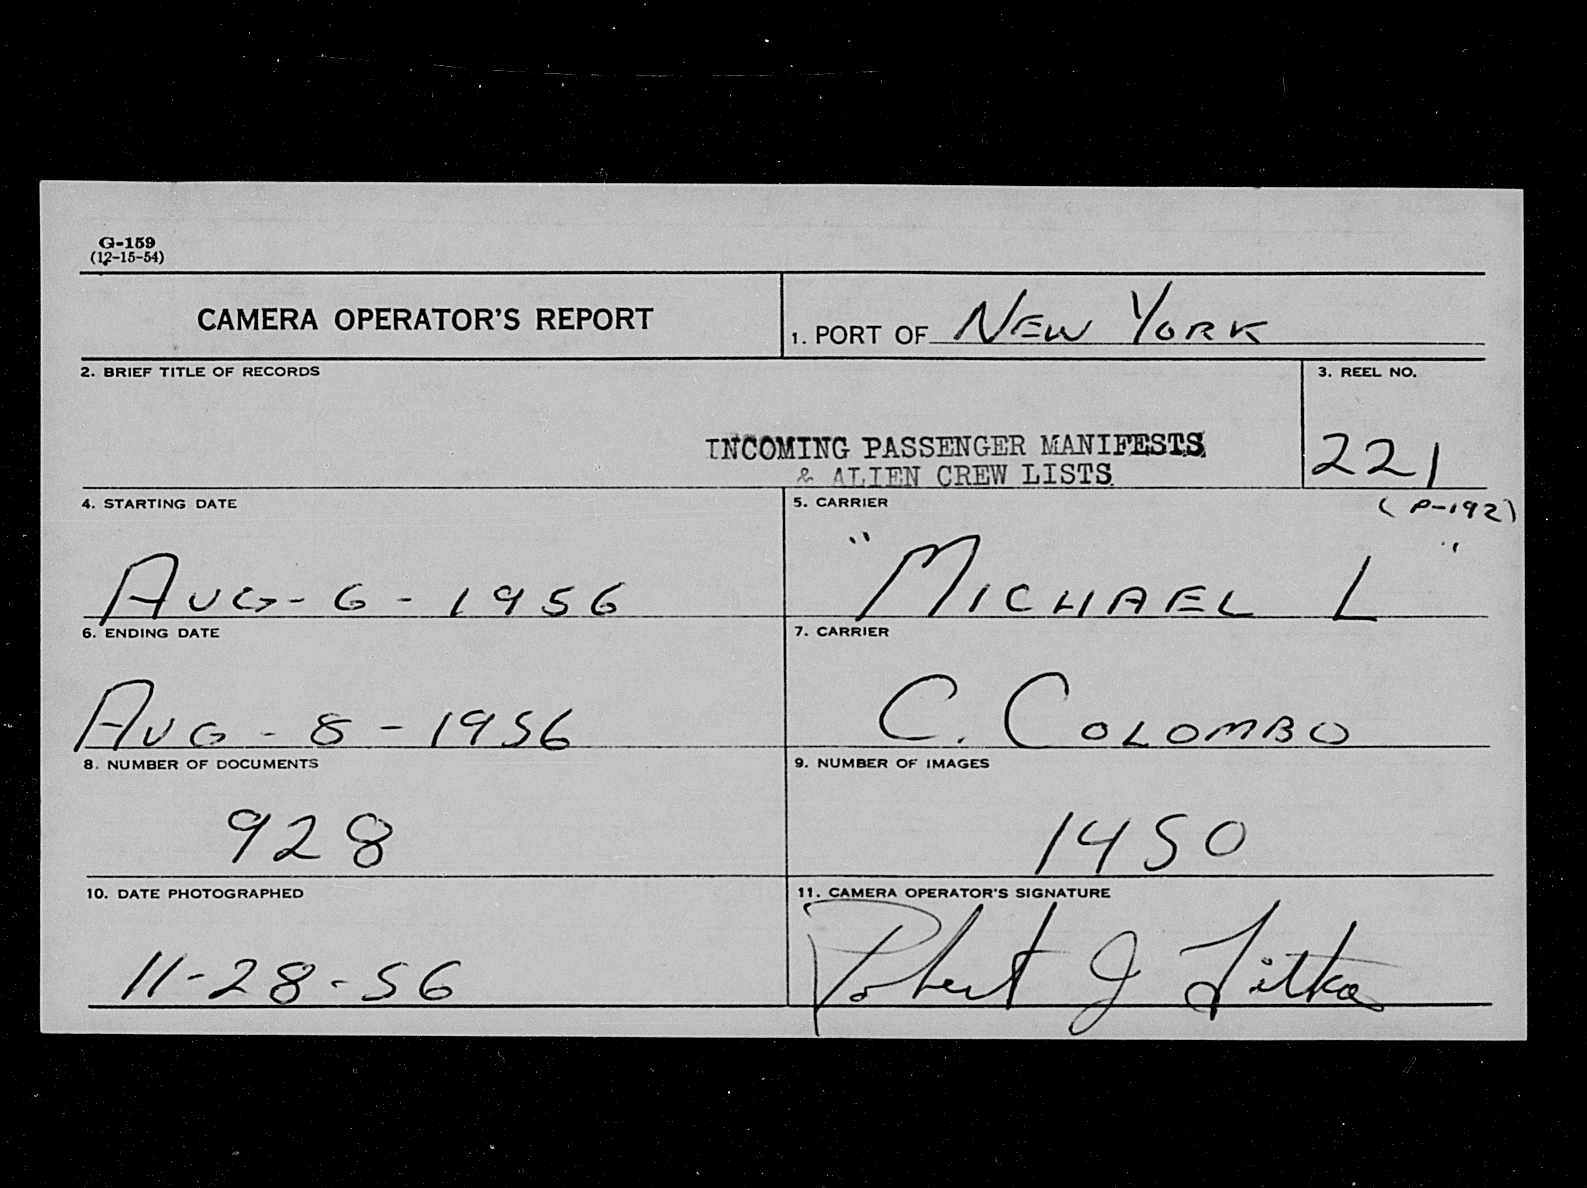 G-159
(12-15-54)
CAMERA OPERATOR'S REPORT
1. PORT OF NEW YORK
2. BRIEF TITLE OF RECORDS
INCOMING PASSENGER MANIFESTS
& ALIEN CREW LISTS
3. REEL NO.
221
(P-192)
4. STARTING DATE
AUG-6-1956
5. CARRIER
"MICHAEL L"
6. ENDING DATE
AUG-8-1956
7. CARRIER
C. COLOMBO
8. NUMBER OF DOCUMENTS
928
9. NUMBER OF IMAGES
1450
10. DATE PHOTOGRAPHED
11-28-56
11. CAMERA OPERATOR'S SIGNATURE
Robert J